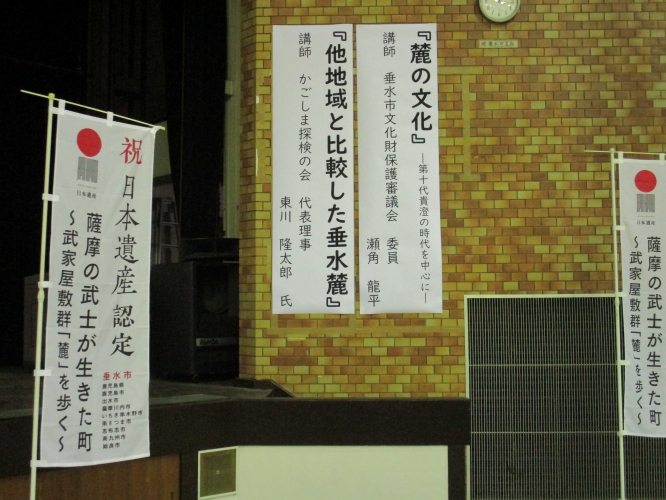 『麓の文化』
―第十代貴澄の時代を中心に―
講師 垂水市文化財保護審議会 委員
瀬角 龍平
『他地域と比較した垂水麓』
講師 かごしま探検の会 代表理事
東川 隆太郎 氏
祝 日本遺産認定
日本遺産
薩摩の武士が生きた町
～武家屋敷群「麓」を歩く～
垂水市
鹿児島県
鹿児島市
出水市
薩摩川内市
いちき串木野市
南さつま市
志布志市
南九州市
姶良市
日本遺産
薩摩の武士が生きた町
～武家屋敷群「麓」を歩く～